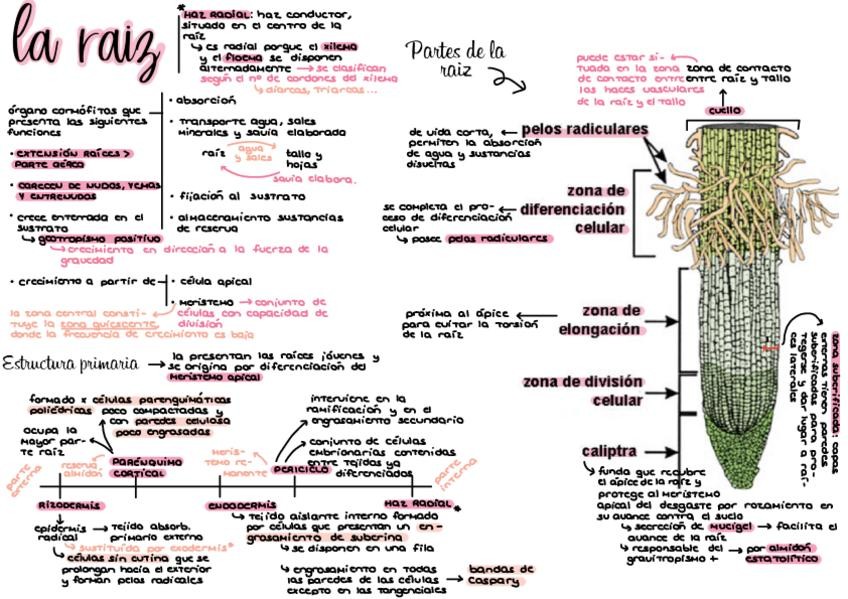 la raiz
*HAZ RADIAL: haz conductor,
situado en el centro de la
raíz
↳ es radial porque el xilema
y el floema se disponen
alternadamente → se clasifican
según el nº de cordones del xilema
↳ diarcas, triarcas...
órgano cormófitas que
presenta las siguientes
funciones
• absorción
• transporte agua, sales
minerales y savia elaborada
raíz
agua
y sales
tallo y
hojas
savia elabora.
• fijación al sustrato
• almacenamiento sustancias
de reserva
• EXTENSIÓN RAÍCES >
PARTE AÉREA
• CARECEN DE NUDOS, YEMAS
Y ENTRENUDOS
• crece enterrada en el
sustrato
↳ geotropismo positivo
↳ crecimiento en dirección a la fuerza de la
gravedad
• crecimiento a partir de
• célula apical
• MERISTEMO → conjunto de
células con capacidad de
división
la zona central consti-
tuye la zona quiescente,
donde la frecuencia de crecimiento es baja
Estructura primaria →
la presentan las raíces jóvenes y
se origina por diferenciación del
meristemo apical
formado x células parenquimáticas
poliédricas poco compactadas y
con paredes celulosa
poco engrosadas
ocupa la
mayor par-
te raíz
reserva
almidón
PARÉNQUIMA
CORTICAL
parte
externa
interviene en la
ramificación y en el
engrosamiento secundario
conjunto de células
embrionarias contenidas
entre tejidos ya
diferenciados
meris-
temo re-
manente
PERICICLO
parte
interna
RIZODERMIS
epidermis
radical
→ tejido absorb.
primario externo
↳ sustituida por exodermis*
↳ células sin cutina que se
prolongan hacia el exterior
y forman pelos radicales
ENDODERMIS
HAZ RADIAL*
↳ tejido aislante interno formado
por células que presentan un en-
grosamiento de suberina
↳ se disponen en una fila
↳ engrosamiento en todas
las paredes de las células
excepto en las tangenciales
→ bandas de
Caspary
Partes de la
raiz
puede estar si-
tuada en la zona
de contacto entre
los haces vasculares
de la raíz y el tallo
zona de contacto
entre raíz y tallo
cuello
de vida corta,
permiten la absorción
de agua y sustancias
disueltas
← pelos radiculares
se completa el pro-
ceso de diferenciación
celular
↳ posee pelos radiculares
zona de
diferenciación
celular
próxima al ápice
para evitar la torsión
de la raíz
zona de
elongación
zona de división
celular
zona suberificada: capas
externas tienen paredes
suberificadas para pro-
tegerse y dar lugar a raí-
ces laterales
caliptra
↳ funda que recubre
el ápice de la raíz y
protege al meristemo
apical del desgaste por rozamiento en
su avance contra el suelo
↳ secreción de mucígel → facilita el
avance de la raíz
↳ responsable del
gravitropismo +
→ por almidón
estatolítico